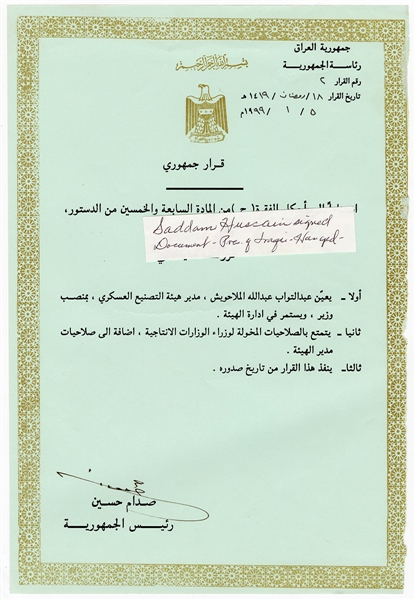 بسم الله الرحمن الرحيم
جمهورية العراق
رئاسة الجمهورية
رقم القرار ٢
تاريخ القرار ١٨/رمضان/١٤١٩هـ
٥/ ١ /١٩٩٩م
قرار جمهوري
أحكام الفقرة (ج) من المادة السابعة والخمسين من الدستور،
Saddam Hussein signed
Document - Pres. of Iraq - Hanged -
أولا ـ يعيّن عبدالتواب عبدالله الملاحويش ، مدير هيئة التصنيع العسكري ، بمنصب
وزير ، ويستمر في ادارة الهيئة .
ثانيا ـ يتمتع بالصلاحيات المخولة لوزراء الوزارات الانتاجية ، اضافة الى صلاحيات
مدير الهيئة .
ثالثا ـ ينفذ هذا القرار من تاريخ صدوره .
صدام حسين
رئيس الجمهورية